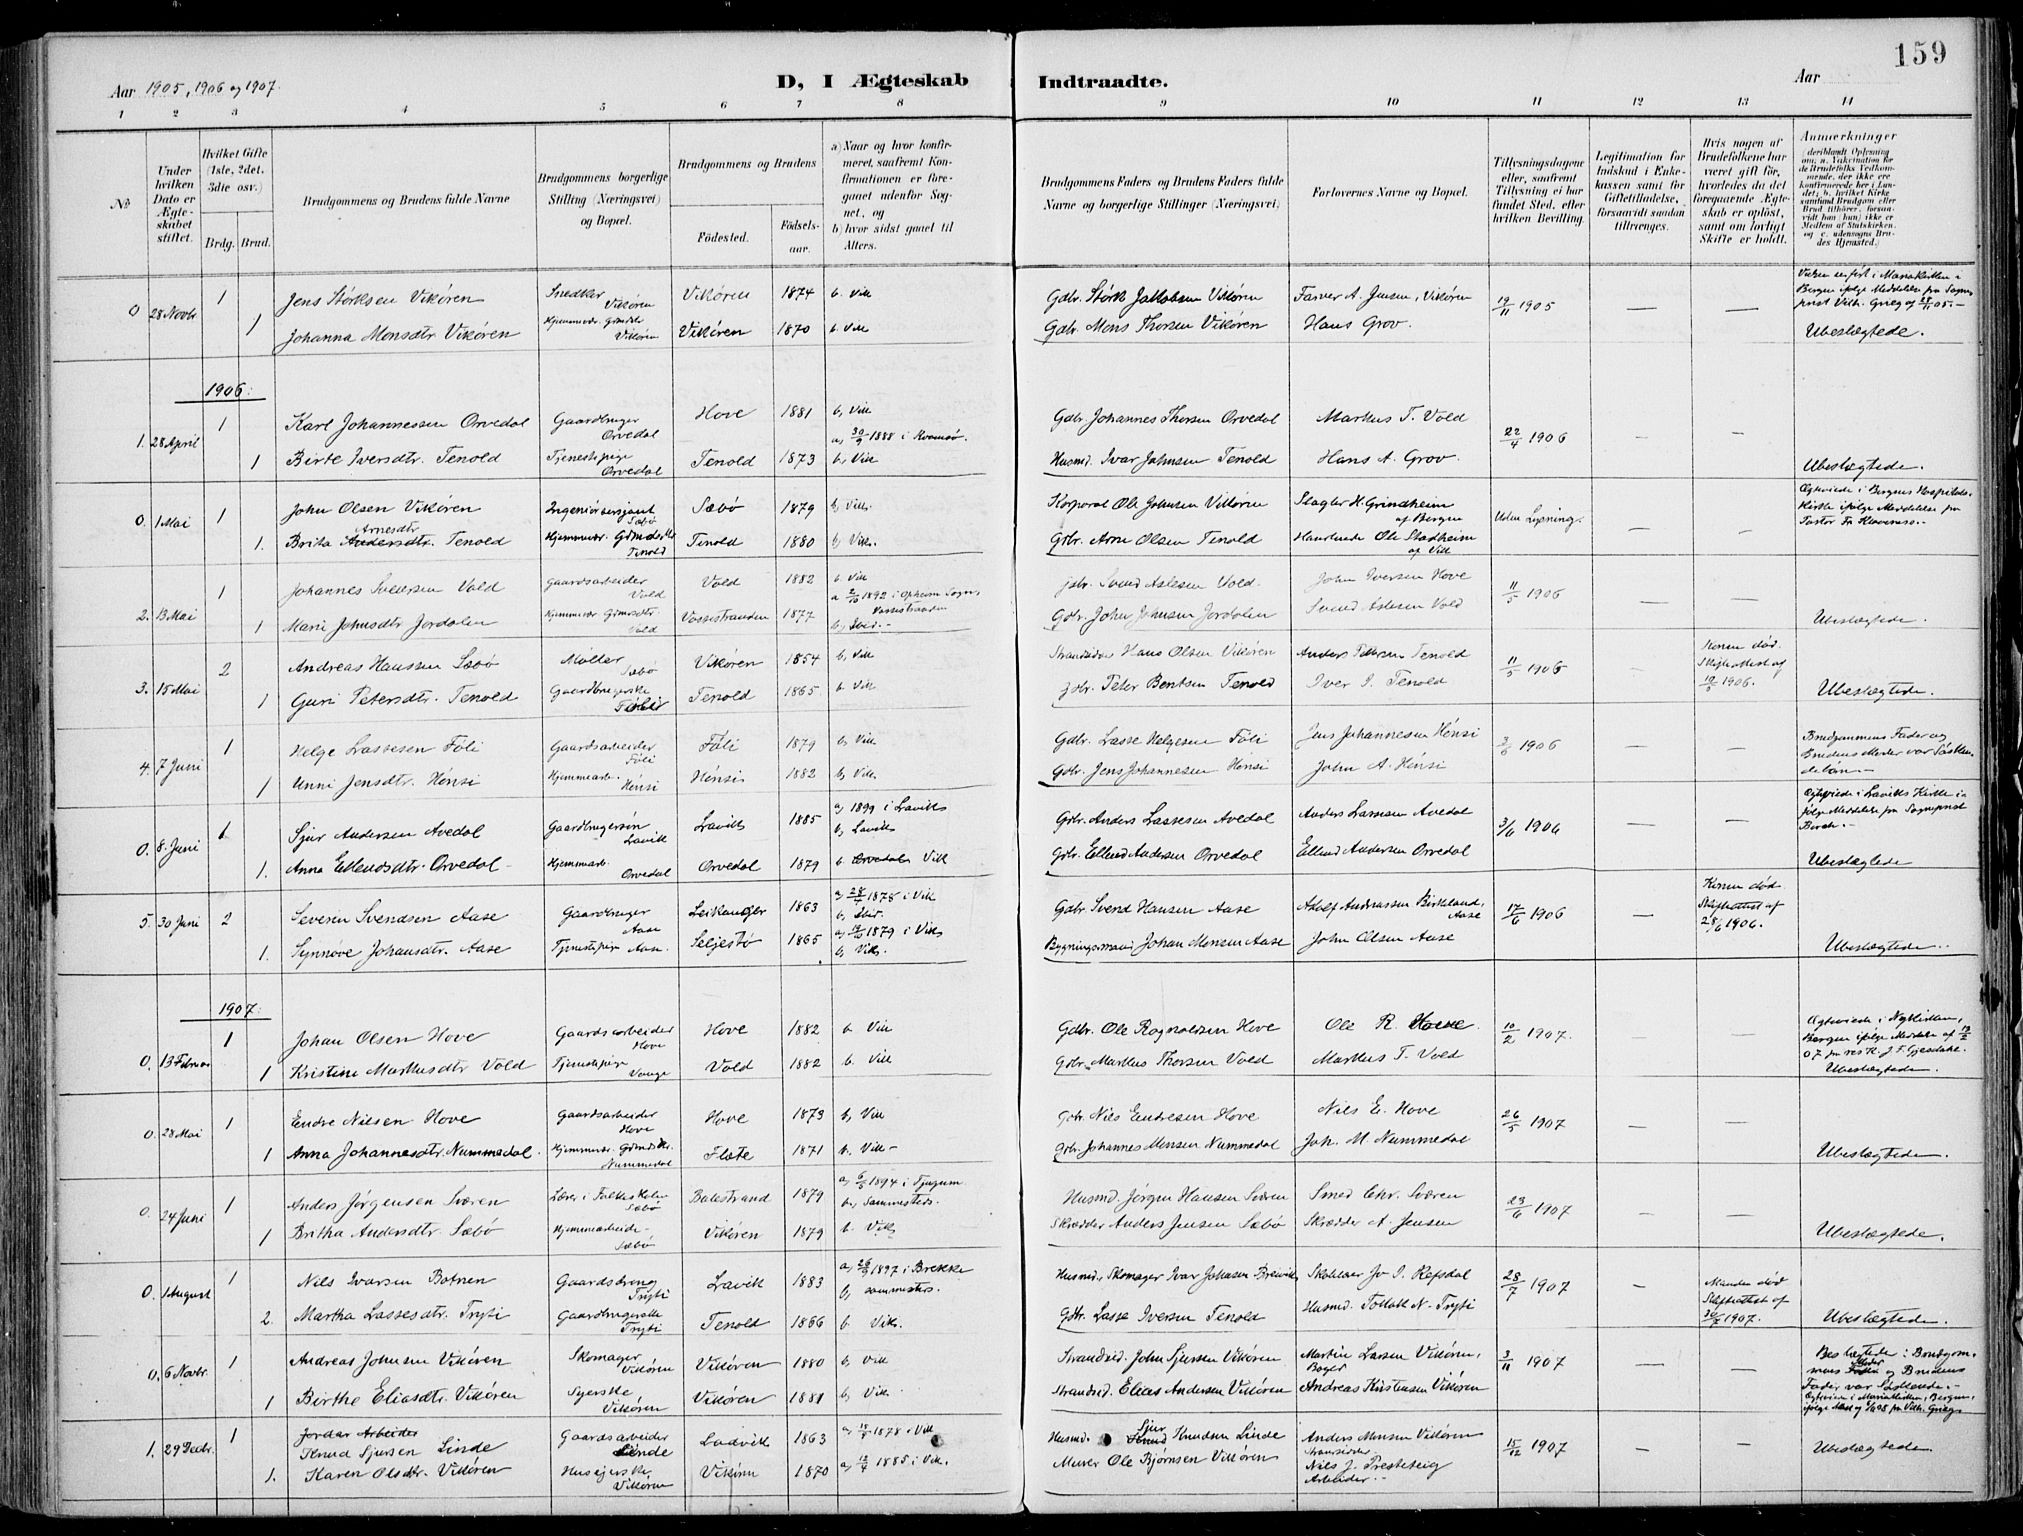 159
Aar 1905, 1906 og 1907.
D, I Ægteskab Indtraadte.
Aar
1 2 3 4 5 6 7 8 9 10 11 12 13 14
No
Under hvilken Dato er Ægteskabet stiftet.
Hvilket Gifte (1ste, 2det, 3die osv.)
Brdg. Brud.
Brudgommens og Brudens fulde Navne
Brudgommens borgerlige Stilling (Næringsvei) og Bopæl.
Brudgommens og Brudens
Fødested. Fødselsaar.
a) Naar og hvor konfirmeret, saafremt Konfirmationen er foregaaet udenfor Sognet, og
b) hvor sidst gaaet til Alters.
Brudgommens Faders og Brudens Faders fulde Navne og borgerlige Stillinger (Næringsvei)
Forlovernes Navne og Bopæl.
Tillysningsdagene eller, saafremt Tillysning ei har fundet Sted, efter hvilken Bevilling.
Legitimation for Indskud i Enkekassen samt for Giftetilladelse, forsaavidt saadan tiltrænges.
Hvis nogen af Brudefolkene har været gift før, hvorledes da det foregaaende Ægteskab er opløst, samt om lovligt Skifte er holdt.
Anmærkninger
0 28 Novbr. 1 Jens Størksen Vikøren Snedker Vikøren Vikøren 1874 b. Vik Gdbr. Størk Jakobsen Vikøren Farver A. Jensen, Vikøren 19/11 1905 — —
1 Johanna Monsdtr Vikøren Vikøren Vikøren 1870 b. Vik Gdbr. Mons Thorsen Vikøren Hans Grov. Ubeslægtede.
1906:
1. 28 April 1 Karl Johannessen Orvedal Gaardbruger Orvedal Hove 1881 b, Vik Gdbr. Johannes Thorsen Orvedal Markus T. Vold 22/4 1906 — —
1 Birte Iversdtr. Tenold Tjenestepige Orvedal Tenold 1873 a, 30/9 1888 i Kvamsø. b, Vik Husmd. Ivar Johnsen Tenold Hans A. Grov. Ubeslægtede.
0. 1 Mai 1 John Olsen Vikøren Ingeniørsersjant Sæbø Sæbø 1879 b, Vik. Korporal Ole Johnsen Vikøren Slagter H. Grindheim af Bergen Uden Lysning. — —
1. Brita Arnesdtr. Tenold Tenold Tenold 1880 b, Vik. Gdbr. Arne Olsen Tenold Handlende Ole Stadheim af Vik
2. 13 Mai 1 Johannes Svendsen Vold Gaardsarbeider Vold Vold 1882 b. Vik Gdbr. Svend Aslesen Vold. John Iversen Hove 11/5 1906 — —
1 Marie Johnsdtr Jordalen Vold Vossestranden 1877 a 2/10 1892 i Opheim Sogn, Vossestranden b, Ibid.- Gdbr. John Johnsen Jordalen Svend Aslesen Vold Ubeslægtede.
3. 15 Mai 2 Andreas Hanssen Sæbø Møller Sæbø Vikøren 1854 b, Vik Strandsidder Hans Olsen Vikøren Anders Petersen Tenold 11/5 1906 — Konen død. Skifteattest af 12/5 1906.
1 Guri Petersdtr. Tenold Gaardbrugerske Tenold 1865 b. Vik Gdbr. Peter Bentsen Tenold Iver I. Tenold Ubeslægtede.
4. 7 Juni 1 Helge Lassesen Føli Gaardsarbeider Føli Føli 1879 b, Vik Gdbr. Lasse Helgesen Føli Jens Johannesen Hønsi 3/6 1906 — — Brudgommens Fader og Brudens Moder var Søskendebørn —
1 Unni Jensdtr. Hønsi Hjemmearb. Hønsi Hønsi 1882 b, Vik. Gdbr. Jens Johannesen Hønsi John A. Hønsi
0. 8. Juni 1 Sjur Andersen Avedal Gaardbrugersøn Lavik Lavik 1885 a, 1899 i Lavik b, Lavik Gdbr. Anders Lassesen Avedal Anders Larssen Avedal 3/6 1906 — — Ægteviede i Lavik Kirke
1. Anna Ellendsdtr. Orvedal Hjemmearb. Orvedal Orvedal 1879 b. Vik Gdbr. Ellend Andersen Orvedal Ellend Andersen Orvedal Ubeslægtede
5. 30 Juni 2 Severin Svendsen Aase Gaardbruger Aase Leikanger 1863 1878 i Vik b, Ibid. Gdbr. Svend Hansen Aase Adolf Andreassen Birkeland, Aase 17/6 1906 — Konen død. Skifteattest af 28/6 1906.
1. Synnøve Johansdtr. Aase Tjenestepige Aase. Seljestø 1865 1879 i Vik b, Vik. Bygningsmand Johan Monsen Aase John Olsen Aase Ubeslægtede.
1907:
0. 13 Februar 1 Johan Olsen Hove Gaardsarbeider Hove Hove 1882 b. Vik Gdbr. Ole Ragnvaldsen Hove Ole R. Hove. 10/2 1907. — —
1 Kristine Markusdtr Vold Tjenestepige Vange Vold 1882 b. Vik Gdbr. Markus Thorsen Vold Markus T. Vold Ubeslægtede.
0. 28 Mai 1 Endre Nilsen Hove Gaardsarbeider Hove Hove 1873 b, Vik Gdbr. Nils Endresen Hove Nils E. Hove 26/5 1907 — —
1 Anna Johannesdtr. Nummedal. Nummedal Flæte 1871 b. Vik Gdbr. Johannes Monsen Nummedal Joh. M. Nummedal Ubeslægtede.
0. 24 Juni 1 Anders Jørgensen Sværen Lærer i Folkeskolen Sæbø Balestrand 1879 1894 i Tjugum b, Sammesteds. Husmd. Jørgen Hansen Sværen Smed Chr. Sværen 23/6 1907 — —
1 Britha Andersdtr. Sæbø Hjemmearbeide Sæbø Vikøren 1879 b. Vik Skrædder Anders Jensen Sæbø Skrædder A. Jensen Ubeslægtede.
0. 1 August 1 Nils Ivarsen Botnen Gaardsdreng Tryti Lavik 1883 1897 i Brekke b, sammesteds. Husmd., Skomager Ivar Johnsen Refsdal 28/7 1907 — Manden død Skifteattest af 1907.
2. Martha Lassesdtr. Tryti Tryti Tenold 1866 b. Vik. Gdbr. Lasse Iversen Tenold Husmd. N. Tryti Ubeslægtede.
0. 6 Novbr. 1 Andreas Johnsen Vikøren Skomager Vikøren Vikøren 1880 b, Vik Strandsid. John Sjursen Vikøren Martin Larsen Vikøren, Bager 3/11 1907 — —
1 Birthe Eliasdtr. Vikøren Syerske Vikøren Vikøren 1881 b, Vik. Strandsid. Elias Andersen Vikøren Andreas Kristensen Vikøren
1. 29 Decbr. 1 Knud Sjursen Linde Gaardsarbeider Linde Ladvik 1863 1878 i Vik Husmd. Sjur Knudsen Linde Anders Monsen Vikøren Strandsidder 15/12 1907 — — Ubeslægtede.
1. Karen Olsdtr. Vikøren Vikøren Vikøren 1870 1885 i Vik. Murer Ole Bjørnsen Vikøren Nils J. Presteteig Arbeider.